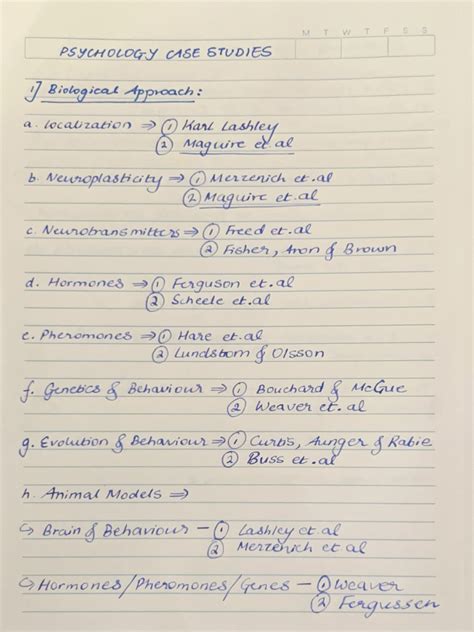 M T W T F S S
PSYCHOLOGY CASE STUDIES
1] Biological Approach:
a. localization ⇒ ① Karl Lashley
② Maguire et al
b. Neuroplasticity ⇒ ① Merzenich et.al
② Maguire et.al
c. Neurotransmitters ⇒ ① Freed et.al
② Fisher, Aron & Brown
d. Hormones ⇒ ① Ferguson et.al
② Scheele et.al
e. Pheromones ⇒ ① Hare et.al
② Lundstbom & Olsson
f. Genetics & Behaviour ⇒ ① Bouchard & McGue
② Weaver et. al
g. Evolution & Behaviour ⇒ ① Curtis, Aunger & Rabie
② Buss et.al
h. Animal Models ⇒
↪ Brain & Behaviour – ① Lashley et.al
② Merzenich et.al
↪ Hormones/Pheromones/Genes – ① Weaver
② Fergussen